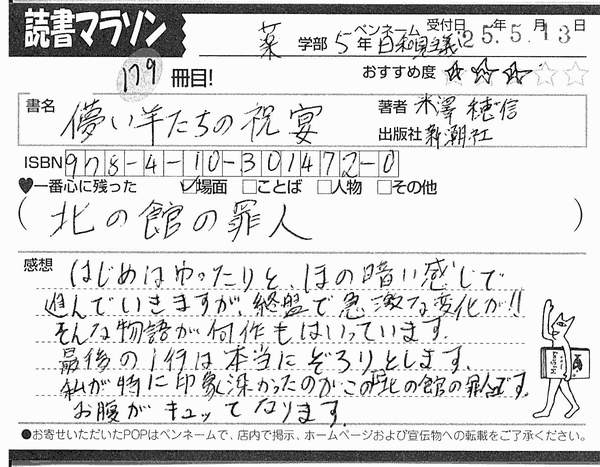 読書マラソン
薬 学部 5年 ペンネーム 日和見主義 受付日 25.5.13 年 月 日
179 冊目!
おすすめ度 ☆☆☆☆☆
書名 儚い羊たちの祝宴
著者 米澤穂信
出版社 新潮社
ISBN 978-4-10-301472-0
♥一番心に残った ☑場面 □ことば □人物 □その他
(北の館の罪人)
感想
はじめはゆったりと、ほの暗い感じで
進んでいきますが、終盤で急激な変化が!!
そんな物語が何作もはいっています。
最後の1行は本当にぞろりとします。
私が特に印象深かったのがこの「北の館の罪人」です。
お腹がキュッてなります。
●お寄せいただいたPOPはペンネームで、店内で掲示、ホームページおよび宣伝物への転載をご了承ください。